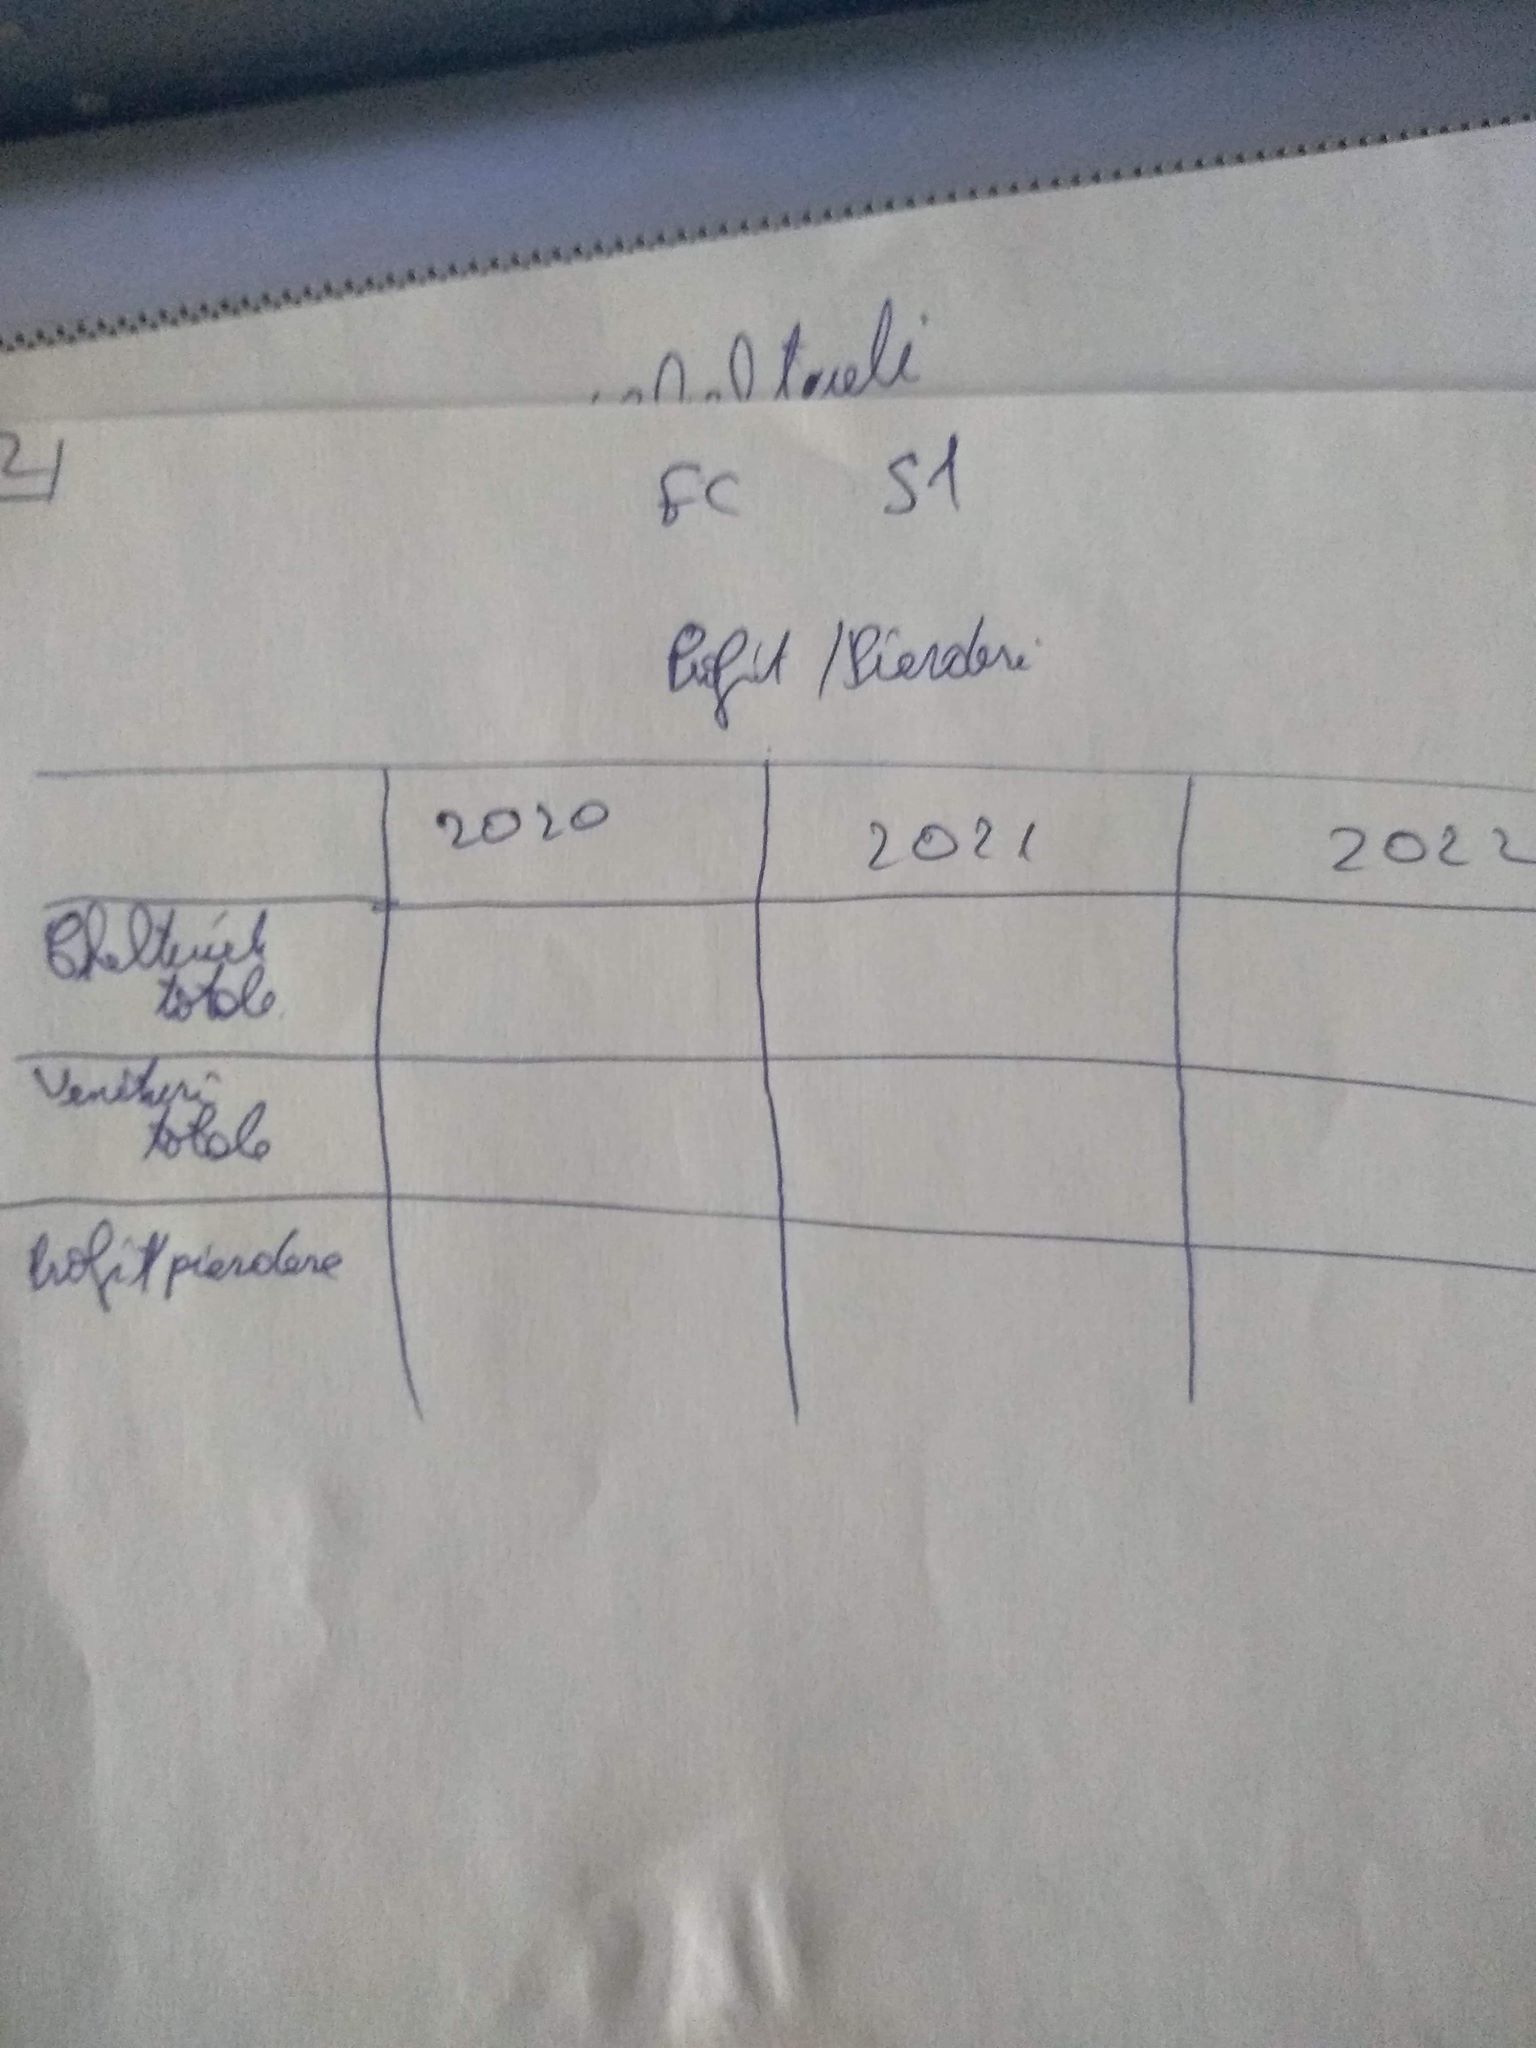 cheltuieli
2)
FC S1
Profit / Pierderi
2020 2021 2022
Cheltuieli
totale
Venituri
totale
Profit/pierdere